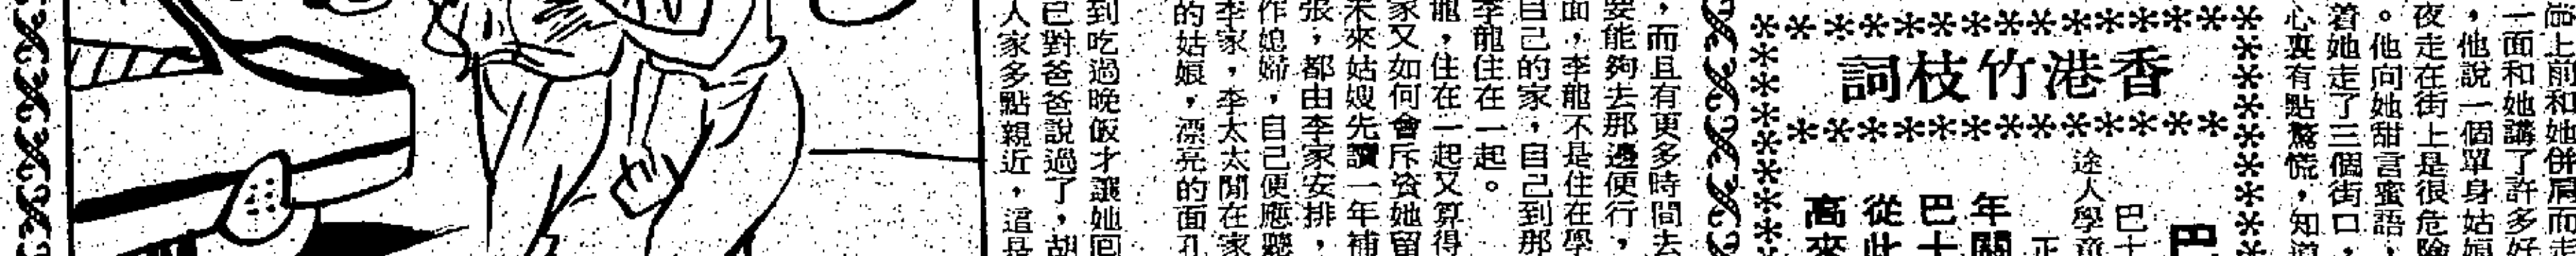 上前和她併肩而走
一面和她講了許多好
，他說一個單身姑娘
夜走在街上是很危險
。他向她甜言蜜語，
着她走了三個街口，
心裏有點驚慌，知道
香港竹枝詞
巴
巴士
途人學童
正
年關
巴士
從此
高來
，而且有更多時間去
要能夠去那邊便行，
面，李龍不是住在學
自己的家，自己到那
李龍住在一起。
龍，住在一起又算得
家又如何會斥資她留
未來姑嫂先讀一年補
張，都由李家安排，
作媳婦，自己便應聽
李家，李太太閒在家
的姑娘，漂亮的面孔
到吃過晚飯才讓她回
已對爸爸說過了，胡
人家多點親近，這是